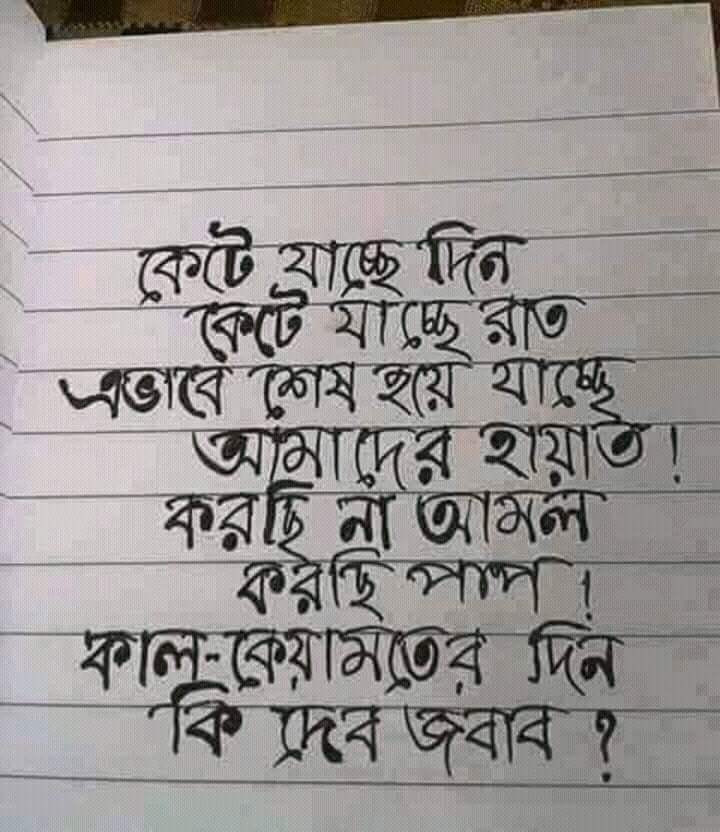 কেটে যাচ্ছে দিন
কেটে যাচ্ছে রাত
এভাবে শেষ হয়ে যাচ্ছে
আমাদের হায়াত !
করছি না আমল
করছি পাপ !
কাল-কেয়ামতের দিন
কি দেব জবাব ?